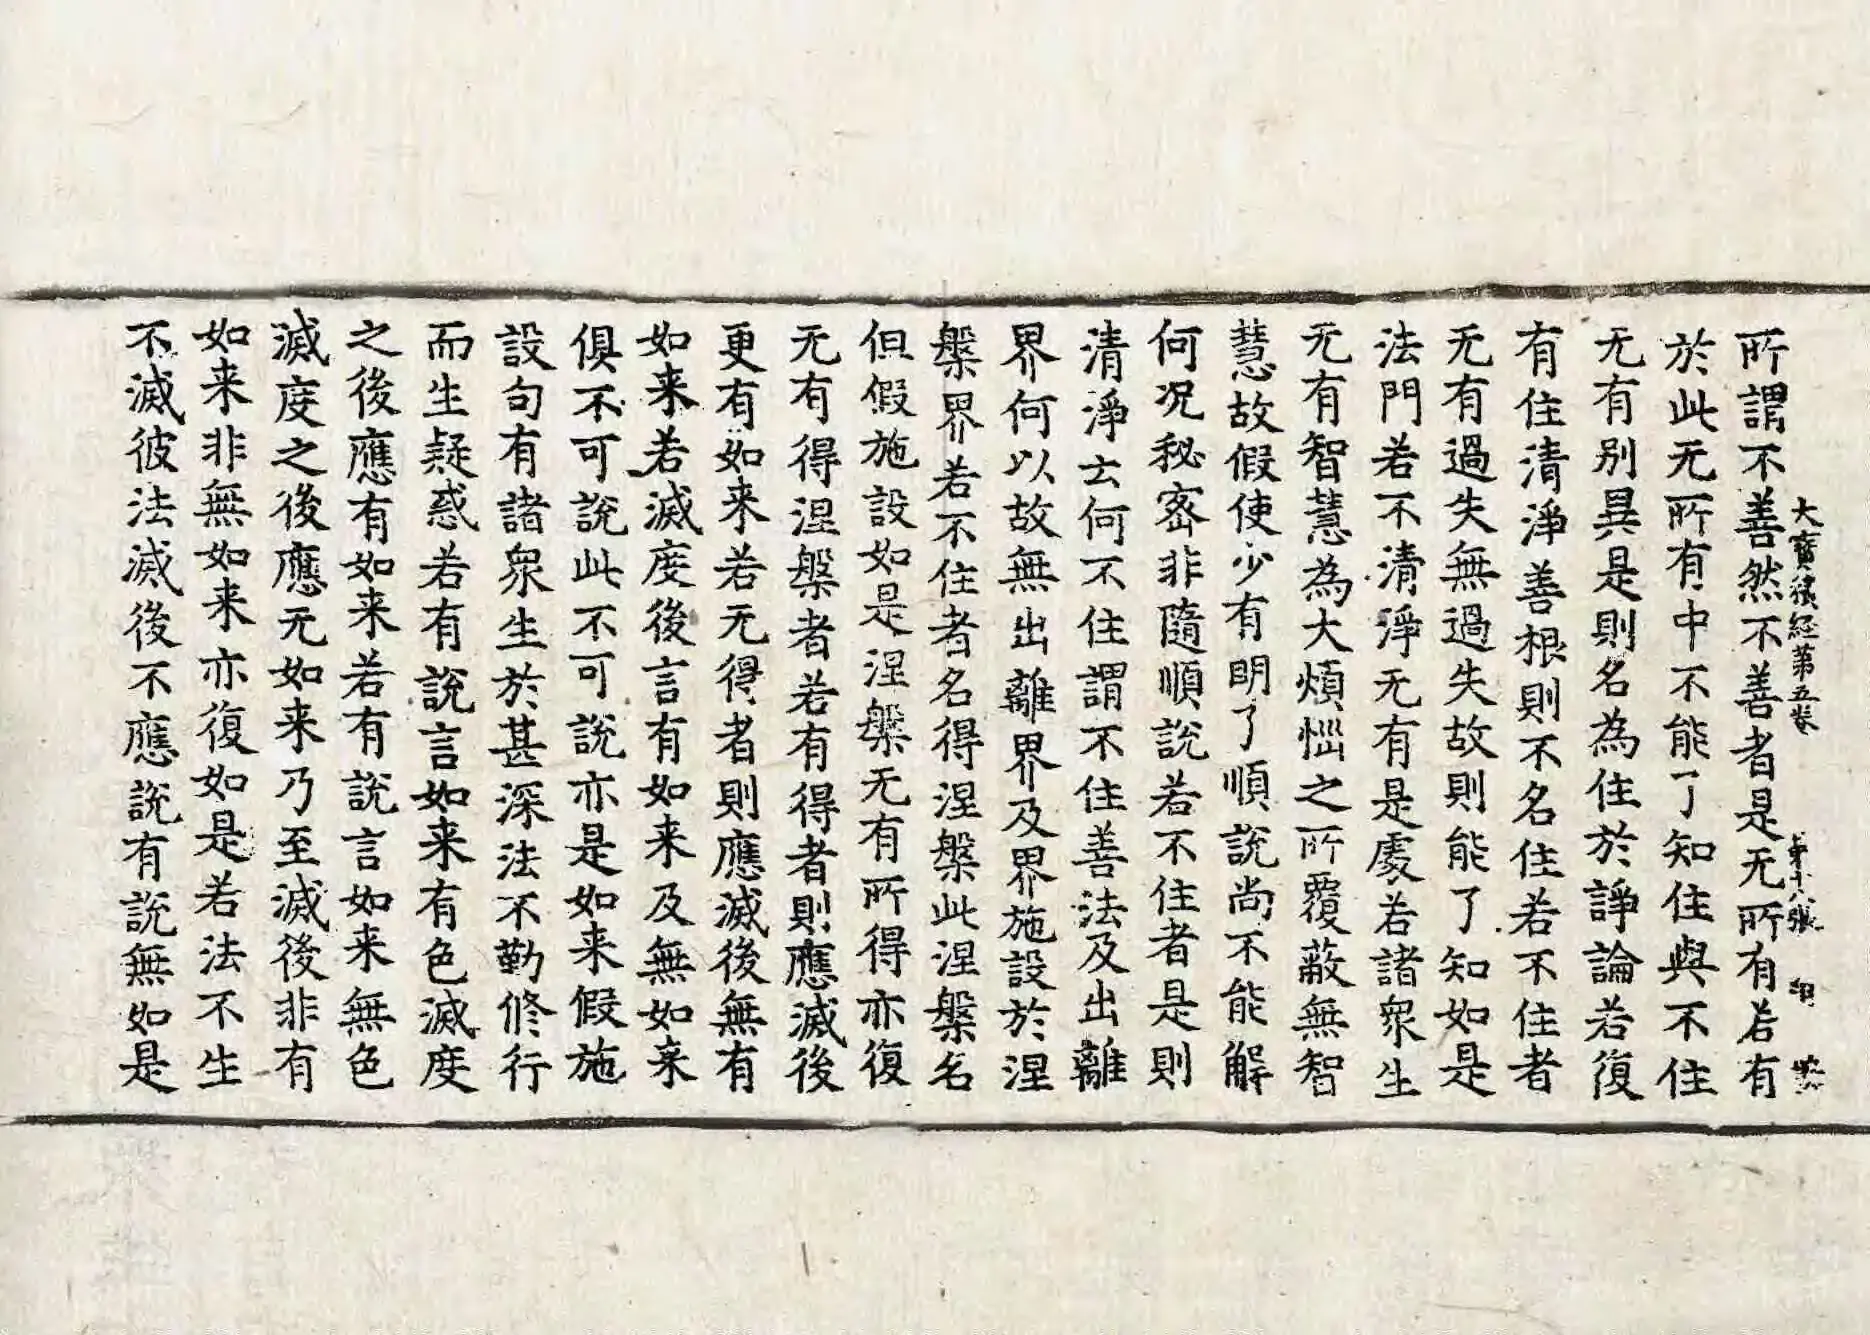 大寶積経第五巻 第十八張
所謂不善然不善者是无所有若有
於此无所有中不能了知住與不住
无有别異是則名為住於諍論若復
有住清淨善根則不名住若不住者
无有過失無過失故則能了知如是
法門若不清淨无有是處若諸衆生
无有智慧為大煩惱之所覆蔽無智
慧故假使少有明了順說尚不能解
何况秘密非隨順說若不住者是則
清淨云何不住謂不住善法及出離
界何以故無出離界及界施設於涅
槃界若不住者名得涅槃此涅槃名
但假施設如是涅槃无有所得亦復
无有得涅槃者若有得者則應滅後
更有如来若无得者則應滅後無有
如来若滅度後言有如来及無如来
俱不可說此不可說亦是如来假施
設句有諸衆生於甚深法不勤修行
而生疑惑若有說言如来有色滅度
之後應有如来若有說言如来無色
滅度之後應无如来乃至滅後非有
如来非無如来亦復如是若法不生
不滅彼法滅後不應說有說無如是